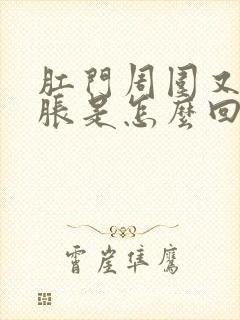 肛門周圍又
脹是怎麼回
霄崖隼鷹